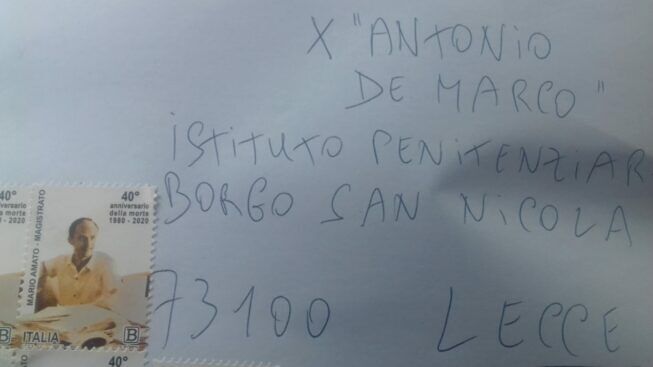 X "ANTONIO
DE MARCO"
ISTITUTO PENITENZIAR
BORGO SAN NICOLA
73100 LECCE
40°
nniversario
della morte
1980 - 2020
40°
anniversario
della morte
1980 - 2020
MARIO AMATO - MAGISTRATO
B ITALIA B
40°